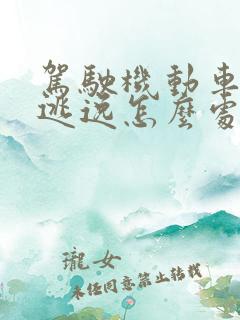 駕駛機動車
逃逸怎麼處
瓏女
未經同意禁止轉載